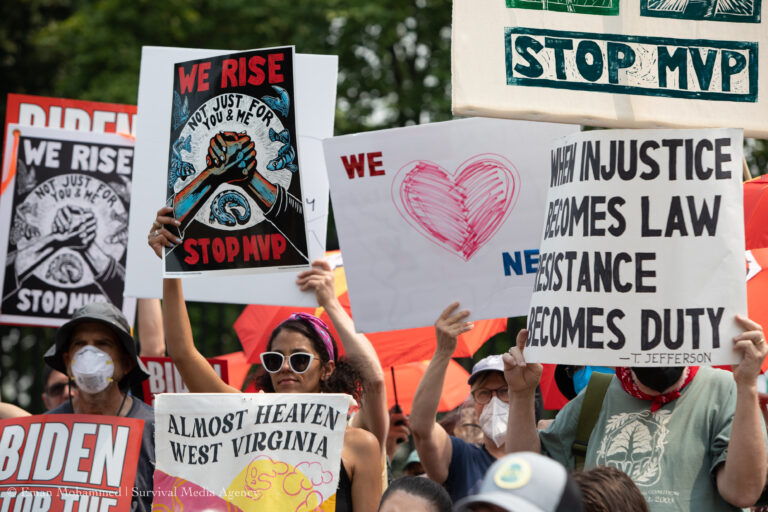 STOP MVP
BIDEN
WE RISE
NOT JUST FOR
YOU & ME
STOP MVP
WE RISE
NOT JUST FOR
YOU & ME
STOP MVP
WE
NE
WHEN INJUSTICE
BECOMES LAW
RESISTANCE
BECOMES DUTY
—T. JEFFERSON
BIDEN
ALMOST HEAVEN
WEST VIRGINIA
BIDEN
STOP THE
© Eman Mohammed | Survival Media Agency